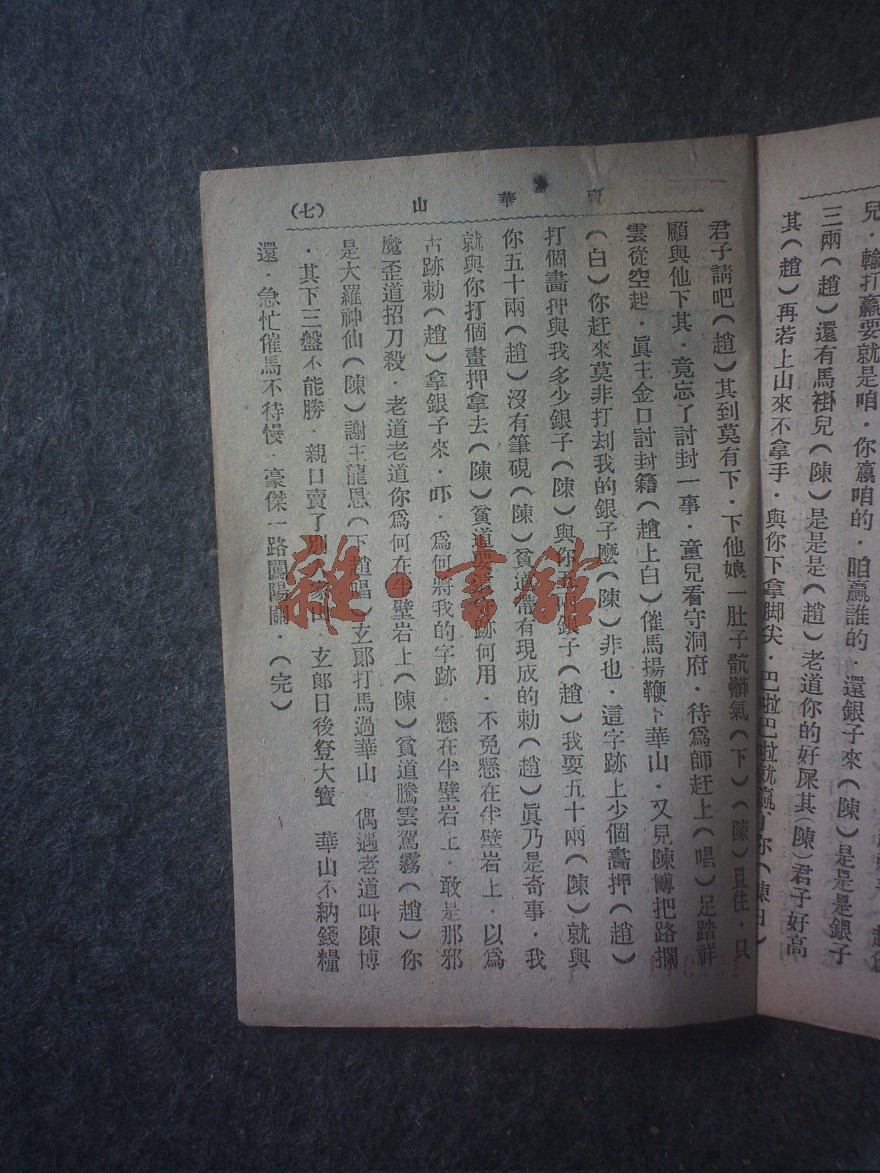 兒．輸打贏要就是咱．你贏咱的．咱贏誰的．還銀子來（陳）是是是銀子
三兩（趙）還有馬褂兒（陳）是是是（趙）老道你的好屎其（陳）君子好高
其（趙）再若上山來不拿手．與你下拿脚尖．巴啦巴啦就贏了你（陳白）
賣華山
（七）
君子請吧（趙）其到莫有下．下他娘一肚子骯髒氣（下）（陳）且住．只
顧與他下其．竟忘了討封一事．童兒看守洞府．待爲師赶上（唱）足踏祥
雲從空起．眞主金口討封籍（趙上白）催馬揚鞭下華山．又見陳博把路攔
（白）你赶來莫非打刦我的銀子麼（陳）非也．這字跡上少個畵押（趙）
打個畵押與我多少銀子（陳）與你五兩銀子（趙）我要五十兩（陳）就與
你五十兩（趙）沒有筆硯（陳）貧道帶有現成的勅（趙）眞乃是奇事．我
就與你打個畫押拿去（陳）貧道要字跡何用．不免懸在半壁岩上．以爲
古跡勅（趙）拿銀子來．吓．爲何將我的字跡．懸在半壁岩上．敢是那邪
魔歪道招刀殺．老道老道你爲何在半壁岩上（陳）貧道騰雲駕霧（趙）你
是大羅神仙（陳）謝主龍恩（下趙唱）玄郎打馬過華山　偶遇老道叫陳博
．其下三盤不能勝．親口賣了　玄郎日後登大寳　華山不納錢糧
還．急忙催馬不待慢．豪傑一路闖陽關．（完）
雜·書館